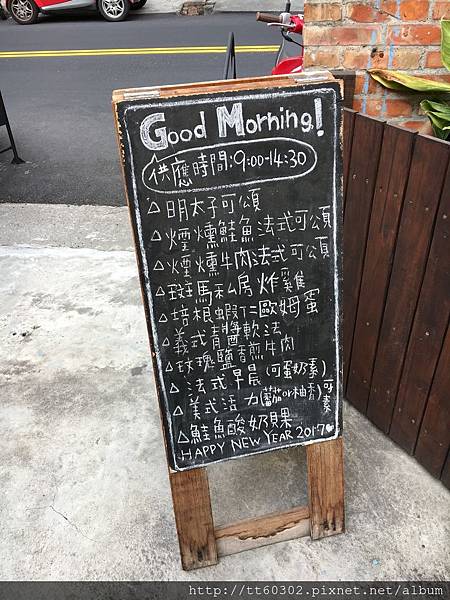 Good Morning!
供應時間:9:00-14:30
△明太子可頌
△煙燻鮭魚法式可頌
△煙燻牛肉法式可頌
△斑馬私房炸雞
△培根蝦仁歐姆蛋
△義式青醬軟法
△玫瑰鹽香煎牛肉
△法式早晨(可蛋奶素)
△美式活力(蕃茄or柚香)可素
△鮭魚酸奶貝果
HAPPY NEW YEAR 2017
http://tt60302.pixnet.net/album